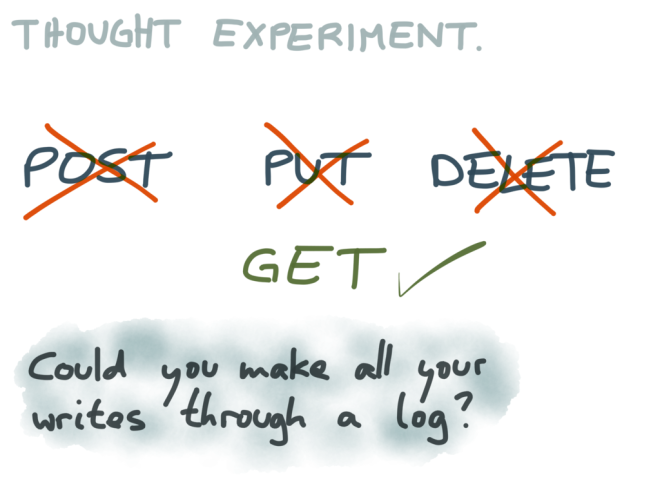 THOUGHT EXPERIMENT.
POST PUT DELETE
GET
Could you make all your
writes through a log?